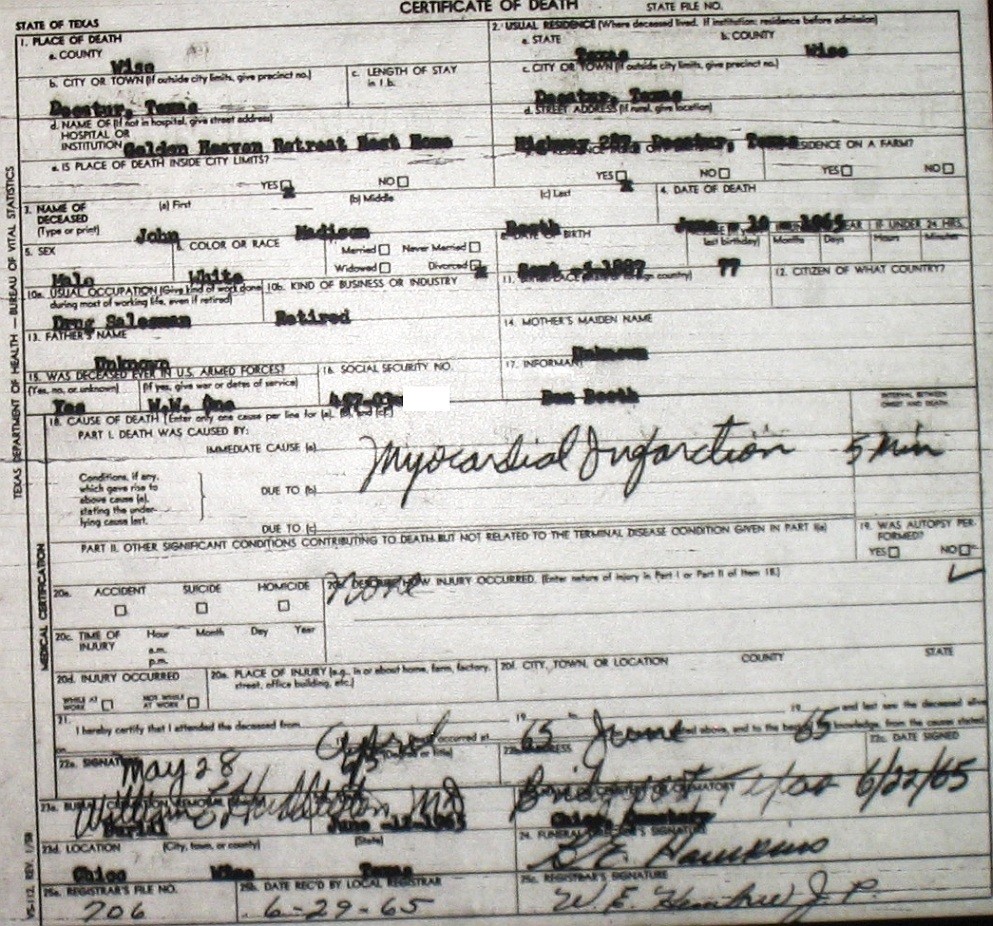 CERTIFICATE OF DEATH
STATE OF TEXAS STATE FILE NO.
1. PLACE OF DEATH 2. USUAL RESIDENCE (Where deceased lived. If institution: residence before admission)
a. COUNTY a. STATE b. COUNTY
Wise Texas Wise
b. CITY OR TOWN (If outside city limits, give precinct no.) c. LENGTH OF STAY in 1 b. c. CITY OR TOWN (If outside city limits, give precinct no.)
Decatur, Texas Decatur, Texas
d. NAME OF (If not in hospital, give street address) d. STREET ADDRESS (If rural, give location)
HOSPITAL OR
INSTITUTION Golden Heaven Retreat Rest Home Highway 287, Decatur, Texas
e. IS PLACE OF DEATH INSIDE CITY LIMITS? RESIDENCE ON A FARM?
YES NO YES NO YES NO
3. NAME OF DECEASED (Type or print) (a) First (b) Middle (c) Last 4. DATE OF DEATH
John Madison Booth June 10 1965
5. SEX 6. COLOR OR RACE Married Never Married DATE OF BIRTH last birthday) Months Days IF UNDER 24 HRS. Hours Minutes
Widowed Divorced
Male White Sept 1887 77
10a. USUAL OCCUPATION (Give kind of work done during most of working life, even if retired) 10b. KIND OF BUSINESS OR INDUSTRY 11. 12. CITIZEN OF WHAT COUNTRY?
Drug Salesman Retired
13. FATHER'S NAME 14. MOTHER'S MAIDEN NAME
Unknown Unknown
15. WAS DECEASED EVER IN U.S. ARMED FORCES? 16. SOCIAL SECURITY NO. 17. INFORMANT
(Yes, no, or unknown) (If yes, give war or dates of service)
Yes W.W. One Booth
18. CAUSE OF DEATH (Enter only one cause per line for (a), (b), and (c)) INTERVAL BETWEEN ONSET AND DEATH
PART I. DEATH WAS CAUSED BY:
IMMEDIATE CAUSE (a) Myocardial Infarction 5 Min
Conditions, if any, which gave rise to above cause (a), stating the underlying cause last.
DUE TO (b)
DUE TO (c)
PART II. OTHER SIGNIFICANT CONDITIONS CONTRIBUTING TO DEATH BUT NOT RELATED TO THE TERMINAL DISEASE CONDITION GIVEN IN PART I(a) 19. WAS AUTOPSY PERFORMED?
YES NO
None
20a. ACCIDENT SUICIDE HOMICIDE 20b. DESCRIBE HOW INJURY OCCURRED. (Enter nature of injury in Part I or Part II of Item 18.)
20c. TIME OF INJURY Hour Month Day Year
a.m.
p.m.
20d. INJURY OCCURRED 20e. PLACE OF INJURY (e.g., in or about home, farm, factory, street, office building, etc.) 20f. CITY, TOWN, OR LOCATION COUNTY STATE
WHILE AT WORK NOT WHILE AT WORK
21. I hereby certify that I attended the deceased from April 19 65 to June 19 65 and last saw the deceased alive
May 28 occurred at above, and to the knowledge, from the causes stated.
22a. SIGNATURE (Degree or title) 22b. ADDRESS 22c. DATE SIGNED
William MD Bridgeport Texas 6/22/65
23a. BURIAL, CREMATION, REMOVAL
Burial June 1965 Chico Cemetery
23d. LOCATION (City, town, or county) (State) 24. FUNERAL DIRECTOR'S SIGNATURE
Chico Wise Texas B.E. Hawkins
25a. REGISTRAR'S FILE NO. 25b. DATE REC'D BY LOCAL REGISTRAR 25c. REGISTRAR'S SIGNATURE
706 6-29-65 W. E. J. P.
TEXAS DEPARTMENT OF HEALTH — BUREAU OF VITAL STATISTICS
MEDICAL CERTIFICATION
VS-112, REV. 1/58